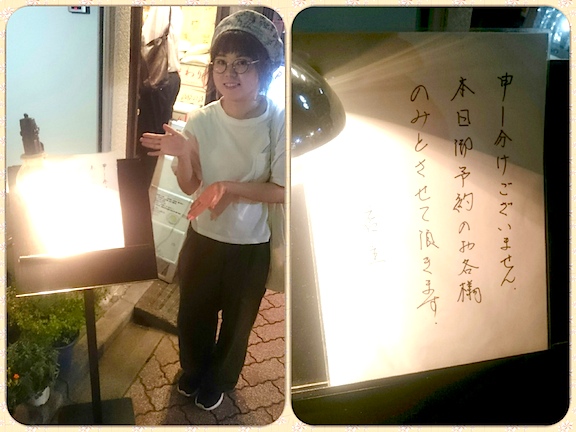 申し分けございません.
本日御予約のお客様
のみとさせて頂きます.